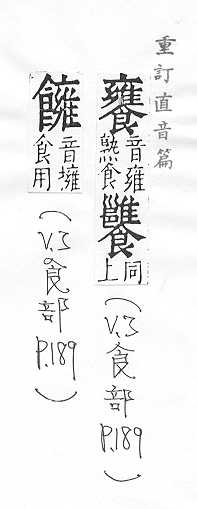 重訂直音篇
饔音雍熟食⿱雝食同上(V.3食部P.189)
⿰食雍音壅食用(V.3食部P.189)